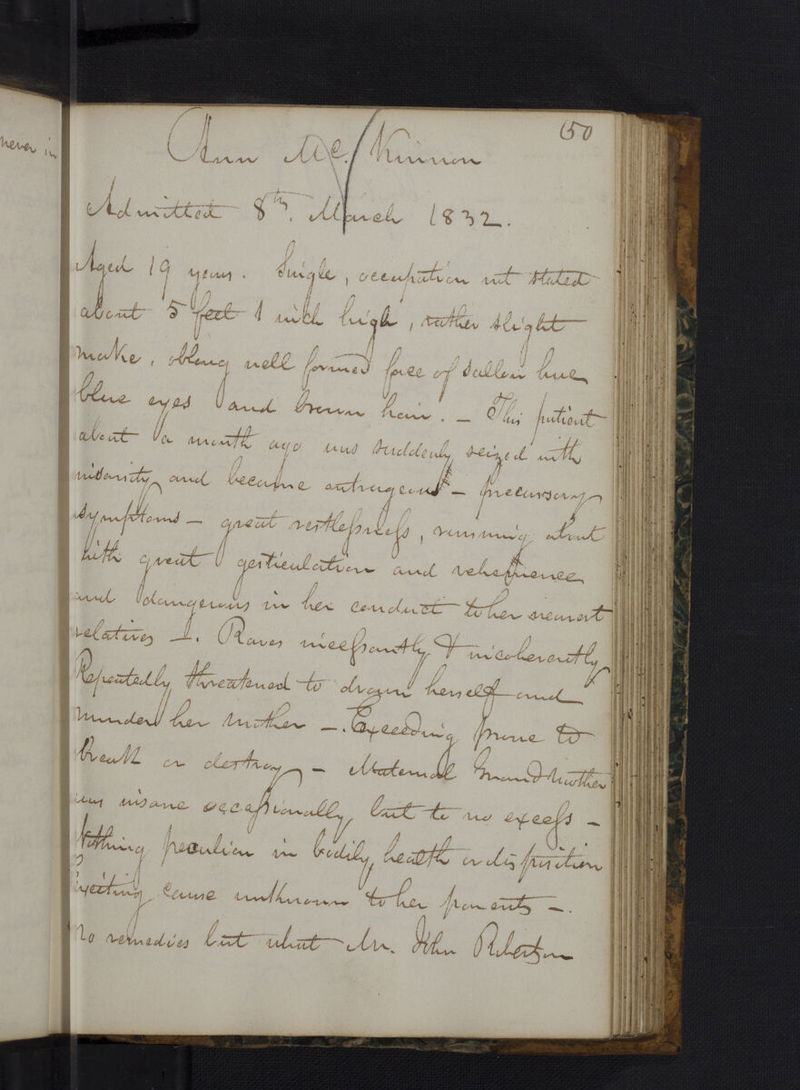 never in
50
Ann Mc.Kinnon
Admitted 8th. March 1832.
Aged 19 years. Single, occupation not stated
about 5 feet 1 inch high, rather slight
make, oblong well formed face of sallow hue
blue eyes and brown hair. - This patient
about a month ago was suddenly seized with
insanity and became outrageous - precursory
symptoms - great restlessness, running about
with great gesticulation and vehemence
and dangerous in her conduct to her nearest
relatives -. Raves incessantly & incoherently
Repeatedly threatened to drown herself and
murder her mother -. Exceeding prone to
break or destroy - Maternal Grandmother
was insane occassionally, but to no excess -
Nothing peculiar in bodily health or disposition
Exciting cause unknown to her parents -.
No remedies but what Mr. John Robertson